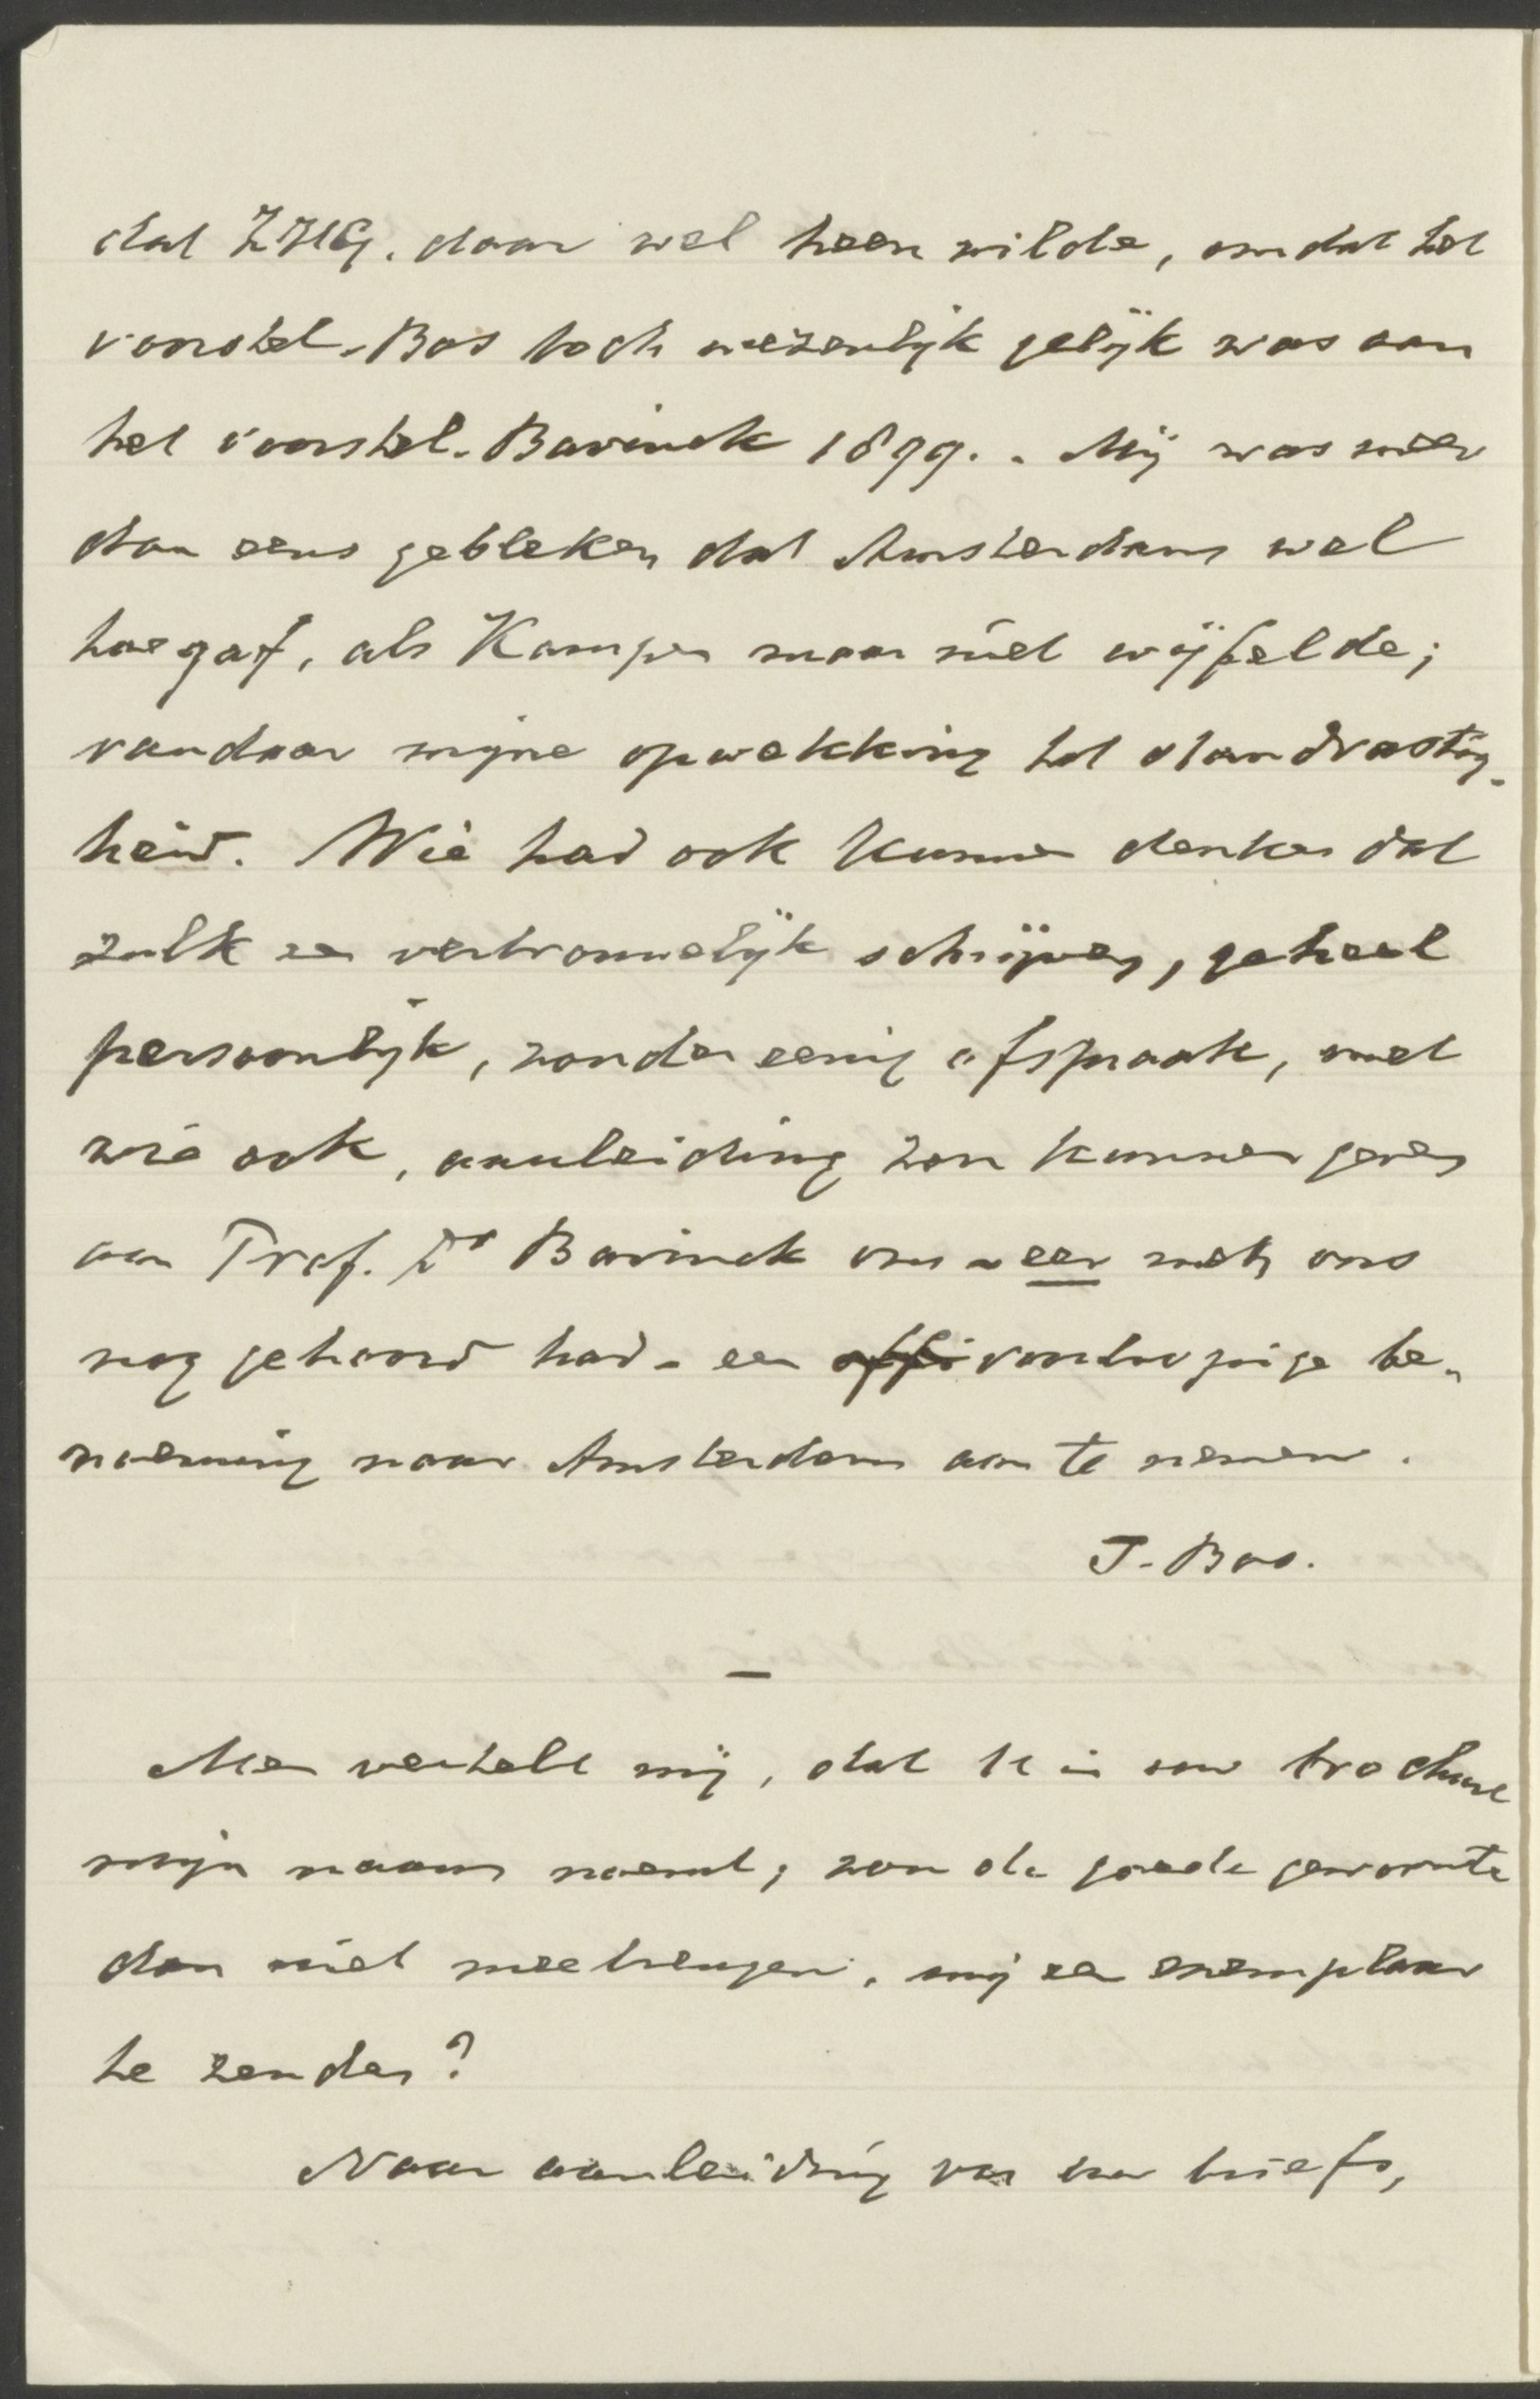 dat ZHG. daar wel heen wilde, omdat het
voorstel-Bos toch wezenlijk gelijk was aan
het voorstel-Bavinck 1899. . Mij was meer
dan eens gebleken dat Amsterdam wel
toegaf, als Kampen maar niet wijfelde;
vandaar mijne opwekking tot standvastig-
heid. Wie had ook kunnen denken dat
zulk een vertrouwelijk schrijven, geheel
persoonlijk, zonder eenig afspraak, met
wie ook, aanleiding zou kunnen geven
aan Prof. Dr Bavinck om - eer men ons
nog gehoord had - een offi voorloopige be-
noeming naar Amsterdam aan te nemen.
J. Bos.
—
Men vertelt mij, dat U in uw brochure
mijn naam noemt; zou de goede gewoonte
dan niet meebrengen, mij een exemplaar
te zenden?
Naar aanleiding van uw briefs,